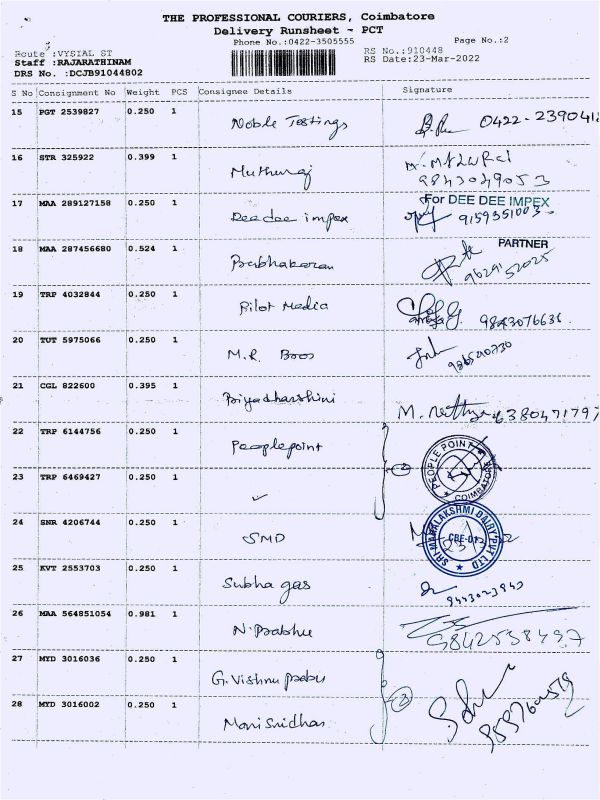 THE PROFESSIONAL COURIERS, Coimbatore
Delivery Runsheet - PCT
Phone No.:0422-3505555 Page No.:2
Route :VYSIAL ST RS No.:910448
Staff :RAJARATHINAM RS Date:23-Mar-2022
DRS No. :DCJB91044802
S No Consignment No Weight PCS Consignee Details Signature
15 PGT 2539827 0.250 1 Noble Testings 0422-2390418
16 STR 325922 0.399 1 Muthuraj
9843049053
17 MAA 289127158 0.250 1 Dee dee impex For DEE DEE IMPEX
PARTNER
18 MAA 287456680 0.524 1 Prabhakaran 9629152025
19 TRP 4032844 0.250 1 Pilot Media 9843076636
20 TUT 5975066 0.250 1 M.R. Boos
21 CGL 822600 0.395 1 Priyadharshini M. 6380471797
22 TRP 6144756 0.250 1 Peoplepoint PEOPLE POINT COIMBATORE
23 TRP 6469427 0.250 1 ✓ 2
24 SNR 4206744 0.250 1 SMD SRI MAHALAKSHMI DAIRY PVT LTD CBE-01
25 KVT 2553703 0.250 1 Subha gas 9443023943
26 MAA 564851054 0.981 1 N. Prabhu 9842538497
27 MYD 3016036 0.250 1 G. Vishnu prabu 2
28 MYD 3016002 0.250 1 Manisridhar